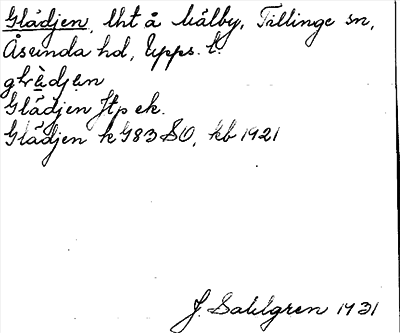 Glädjen, lht å Målby, Tillinge sn,
Åsunda hd, Upps. l.
Glädjen Jtp ek.
Glädjen k 983 SO, kb 1921
J. Sahlgren 1931